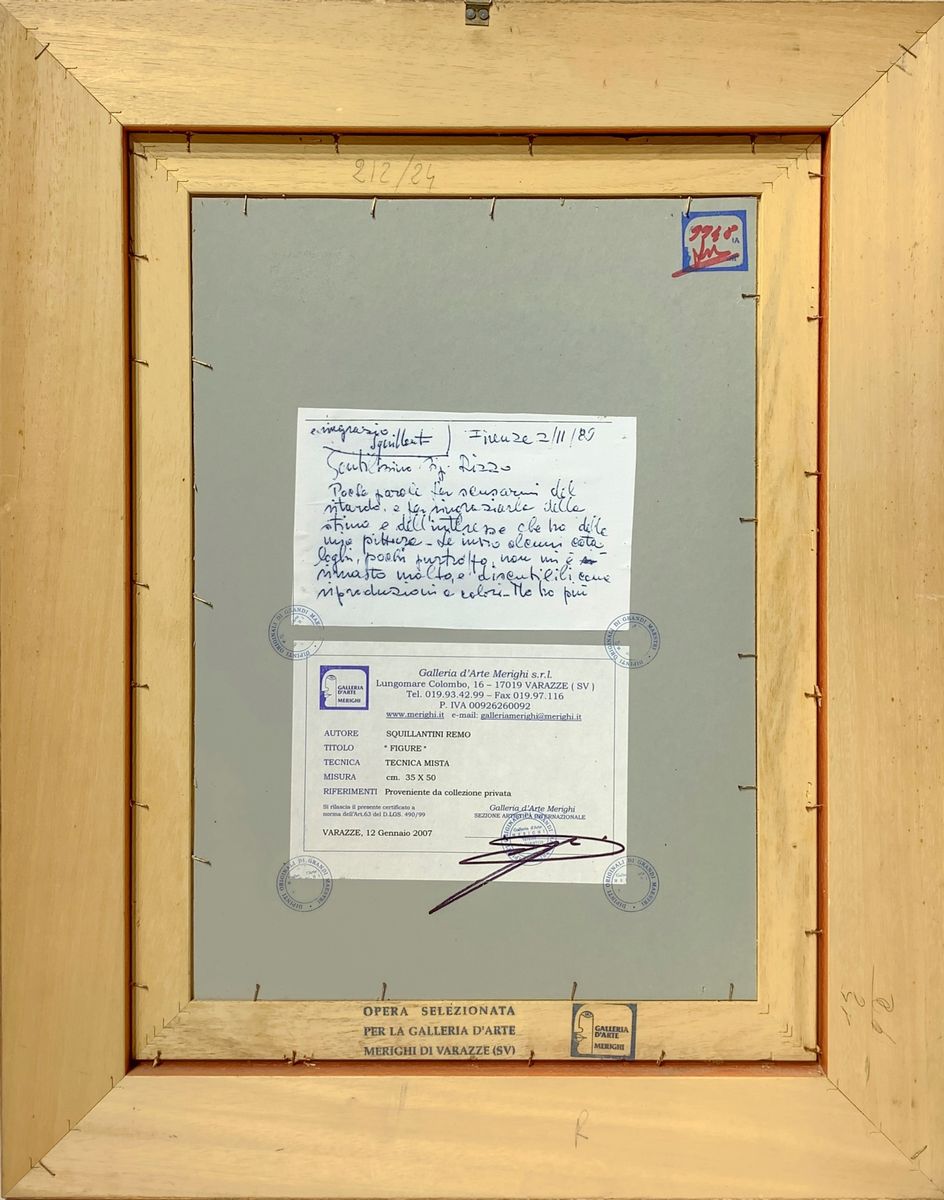 212/24
9948
e ringrazio
Squillanti
Firenze 2/11/89
Gentilissimo Sig. Rizzo
Poche parole per scusarmi del
ritardo, e per ringraziarla della
stima e dell'interesse che ha della
mia pittura - Le invio alcuni cata
loghi, pochi purtroppo, non mi è
rimasto molto, e discutibili come
riproduzioni a colori - Ma ho più
DIPINTI ORIGINALI DI GRANDI MAESTRI
DIPINTI ORIGINALI DI GRANDI MAESTRI
GALLERIA
D'ARTE
MERIGHI
Galleria d'Arte Merighi s.r.l.
Lungomare Colombo, 16 – 17019 VARAZZE ( SV )
Tel. 019.93.42.99 – Fax 019.97.116
P. IVA 00926260092
www.merighi.it e-mail: galleriamerighi@merighi.it
AUTORE SQUILLANTINI REMO
TITOLO " FIGURE "
TECNICA TECNICA MISTA
MISURA cm. 35 X 50
RIFERIMENTI Proveniente da collezione privata
Si rilascia il presente certificato a
norma dell'Art.63 del D.LGS. 490/99
Galleria d'Arte Merighi
SEZIONE ARTISTICA INTERNAZIONALE
VARAZZE, 12 Gennaio 2007
Galleria d'Arte
MERIGHI
DIPINTI ORIGINALI DI GRANDI MAESTRI
DIPINTI ORIGINALI DI GRANDI MAESTRI
OPERA SELEZIONATA
PER LA GALLERIA D'ARTE
MERIGHI DI VARAZZE (SV)
GALLERIA
D'ARTE
MERIGHI
R